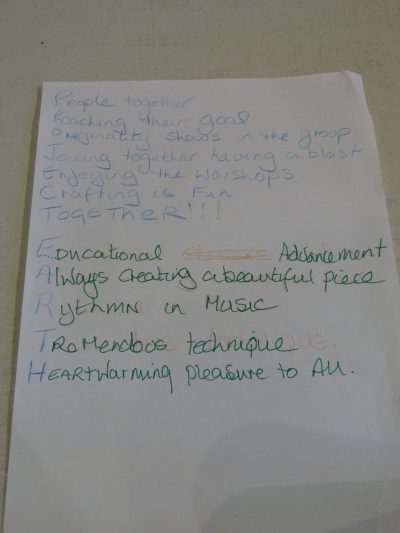 People together
Reaching their goal
Originality shows in the group.
Joining together having a blast
Enjoying the worshops.
Crafting is Fun
TogeTHeR!!!
Educational Advancement
Always creating a beautiful piece
Rythmn in Music
Tremendous technique
Heartwarming pleasure to All.